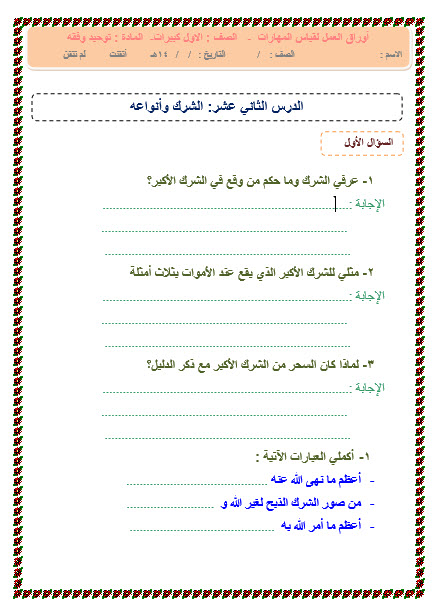 أوراق العمل لقياس المهارات - الصف : الاول كبيرات- المادة : توحيد وفقه
الاسم : الصف : / التاريخ : / / ١٤هـ أتقنت لم تتقن
الدرس الثاني عشر: الشرك وأنواعه
السؤال الأول
١- عرفي الشرك وما حكم من وقع في الشرك الأكبر؟
الإجابة :......................................................
......................................................
......................................................
٢- مثلي للشرك الأكبر الذي يقع عند الأموات بثلاث أمثلة
الإجابة :......................................................
......................................................
......................................................
٣- لماذا كان السحر من الشرك الأكبر مع ذكر الدليل؟
الإجابة :......................................................
......................................................
......................................................
١- أكملي العبارات الآتية :
- أعظم ما نهى الله عنه ................................
- من صور الشرك الذبح لغير الله و ..........................
- أعظم ما أمر الله به ................................